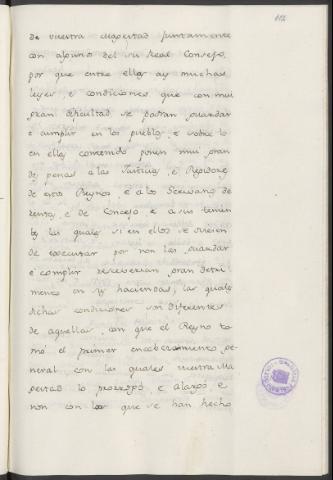 112
de vuestra magestad juntamente
con algunos del su Real Consejo,
por que entre ellas ay muchas
leyes, e condiciones, que con mui
gran dificultad se podran guardar
e cumplir en los pueblos, e sobre lo
en ellas contenido ponen mui gran
des penas a las Justicias, e Regidores
de estos Reynos e a los Scrivanos de
renta, e de Concejo e a sus tenien
tes las quales si en ellos se uviesen
de executar por non las guardar
e complir rescevirian gran detri
mento en sus haciendas, las quales
dichas condiciones son diferentes
de aquellas, con que el Reyno to
mó el primer encabezamiento ge
neral, con las quales vuestra Ma
gestad lo prorrogó, e alargó e
non con las que se han hecho